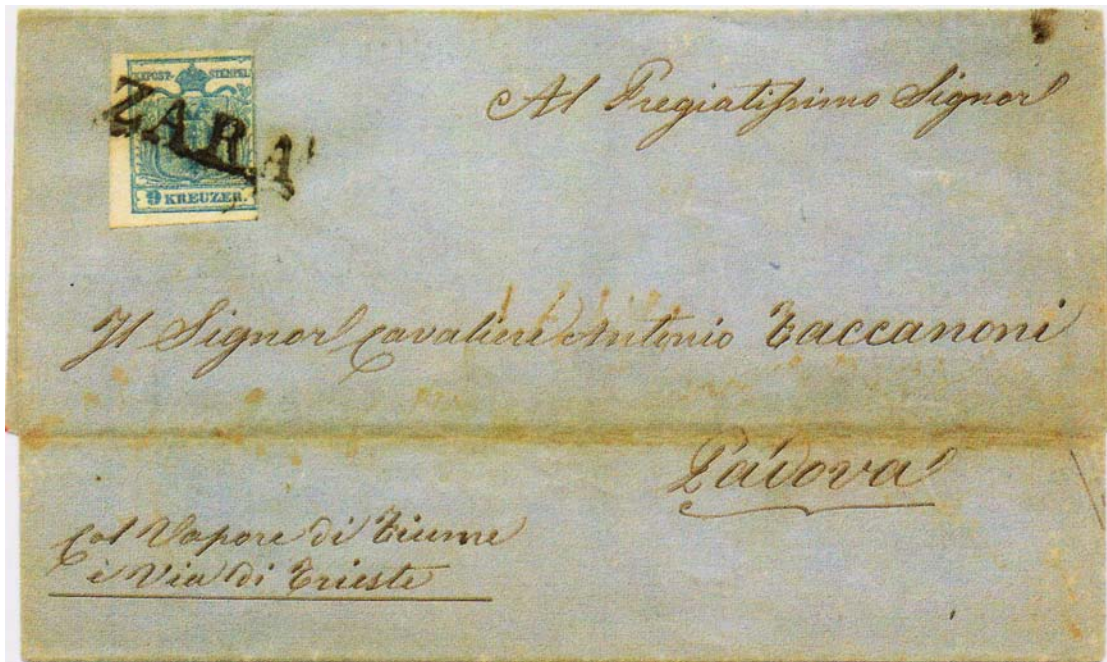 KKPOST-STEMPEL
ZARA
9 KREUZER.
Al Pregiatissimo Signor
Il Signor Cavaliere Antonio Zaccanoni
Padova
Col Vapore di Fiume
è Via di Trieste